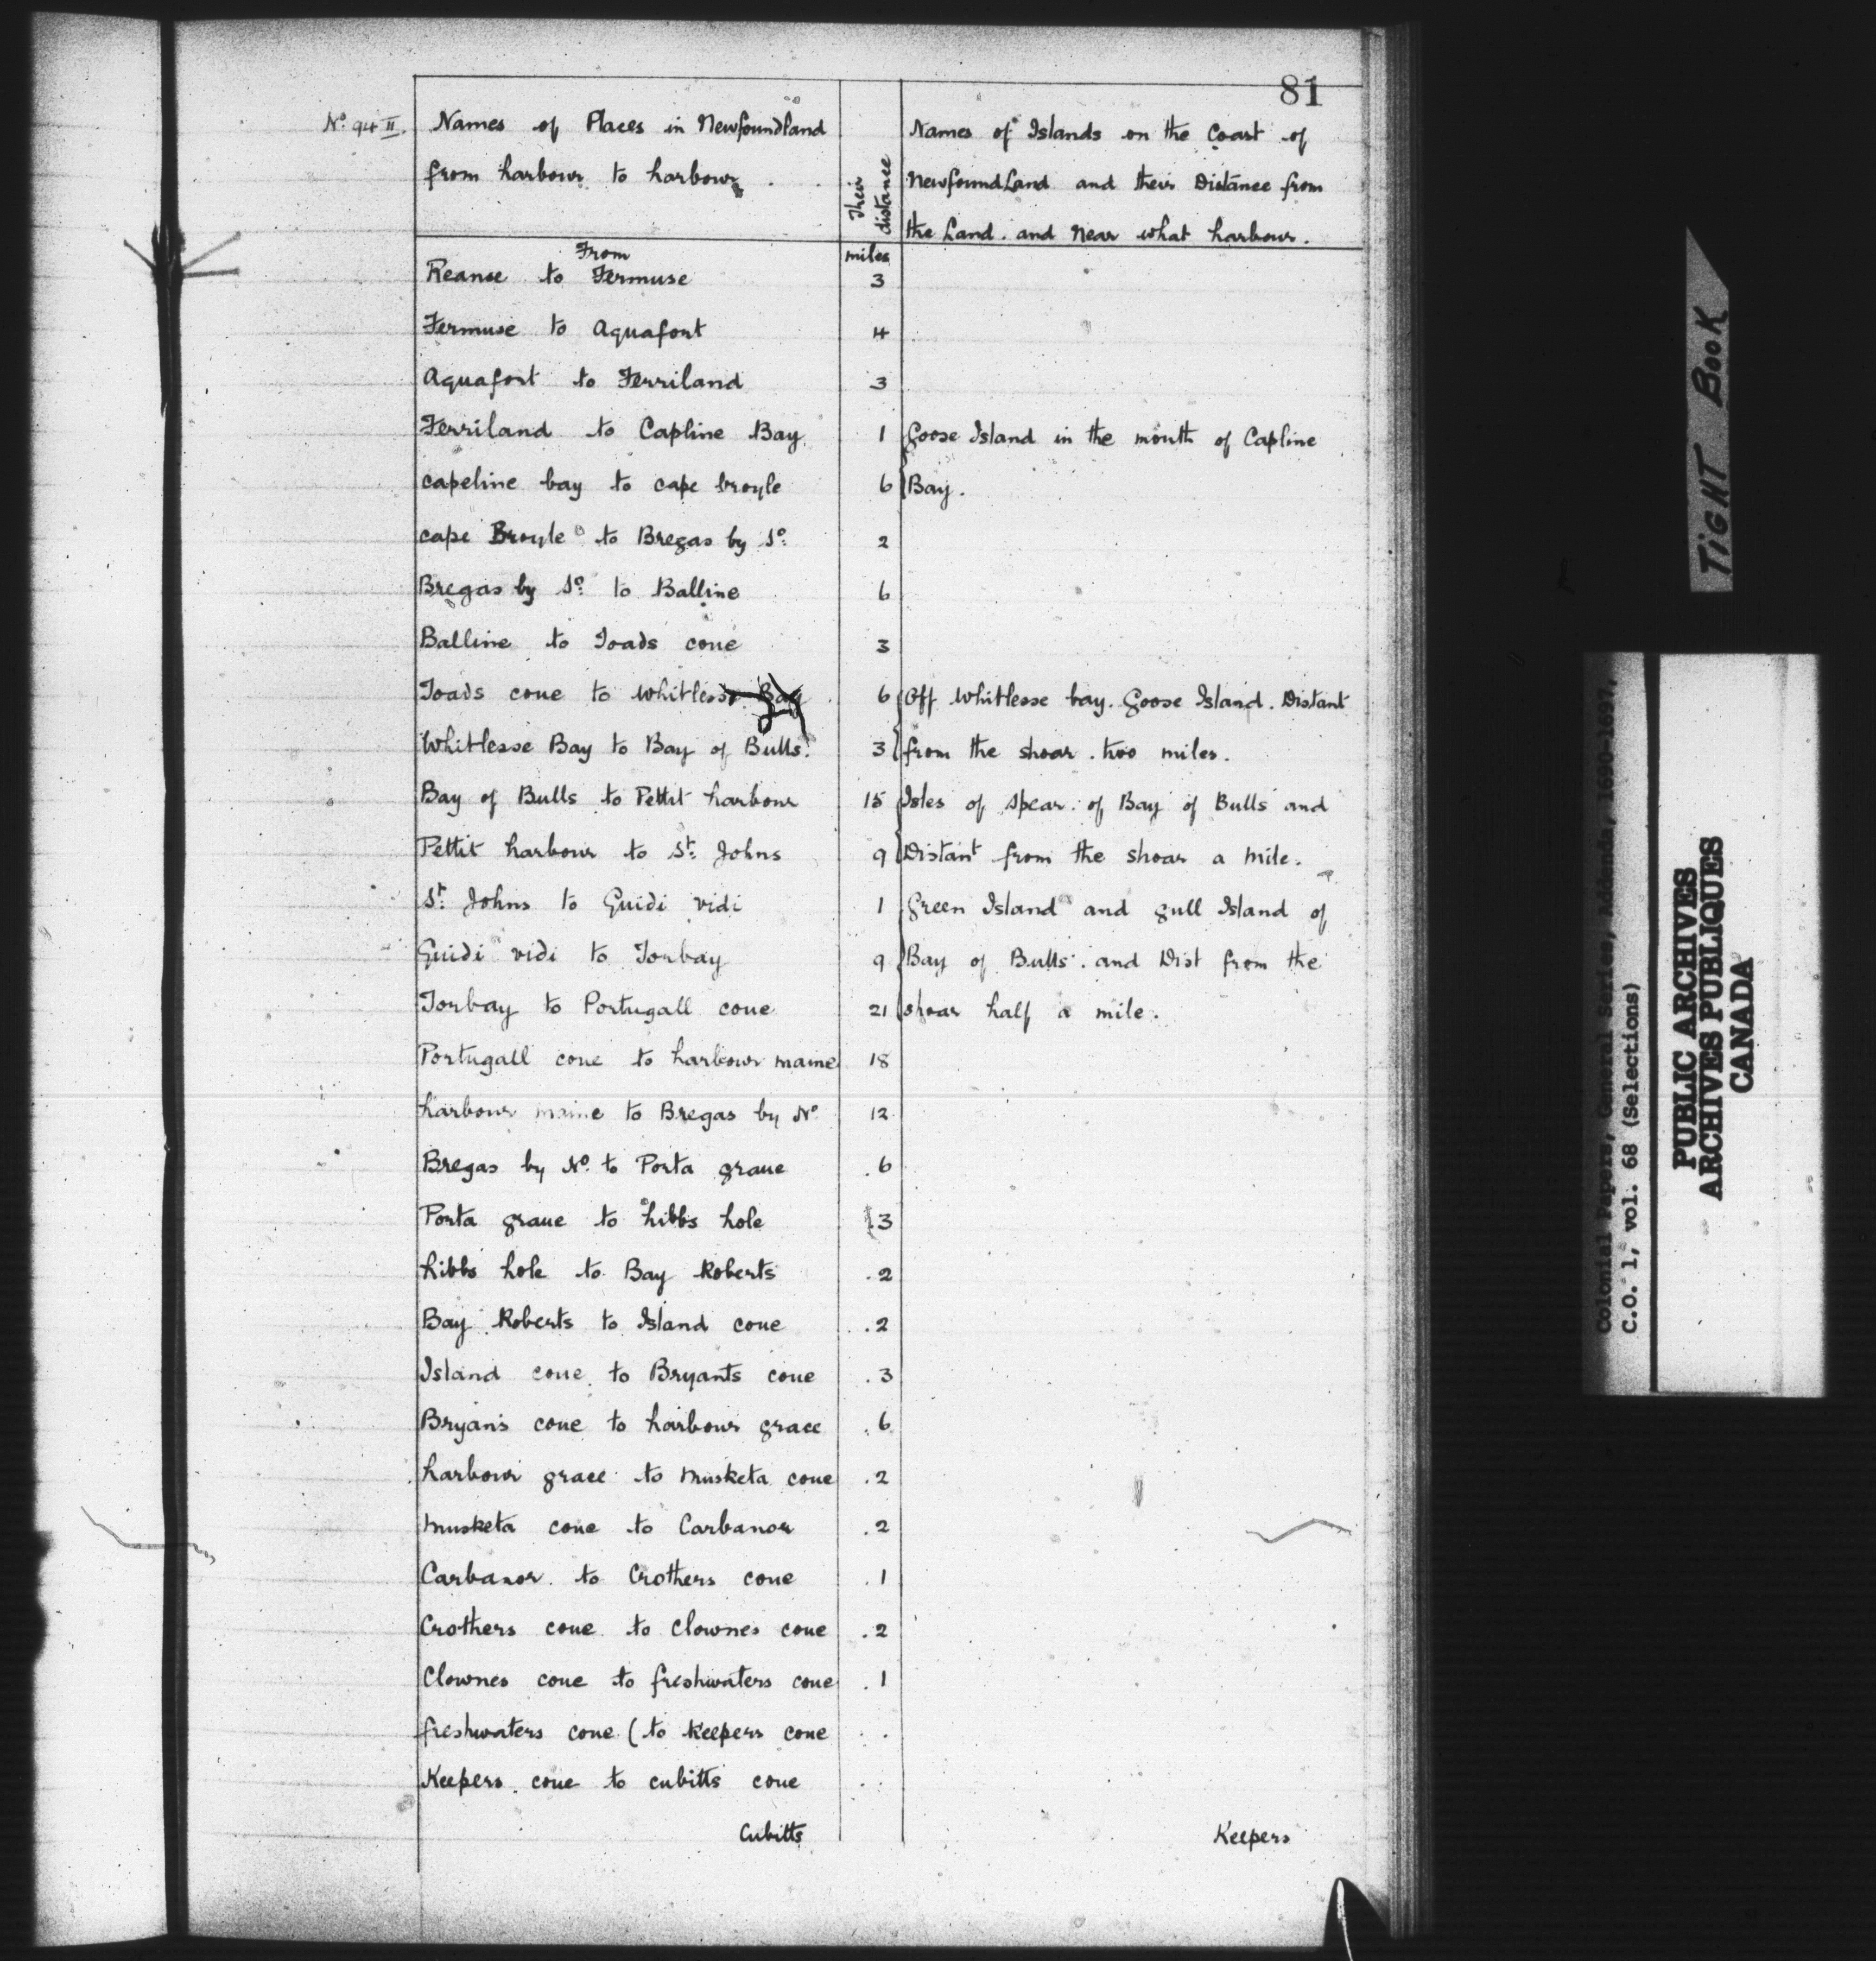 81
No. 94 II.
Names of Places in Newfoundland
from harbour to harbour.
Their distance
Names of Islands on the Coast of
NewfoundLand and their Distance from
the Land. and Near what harbour.
From
miles
Reanse to Fermuse 3
Fermuse to Aquafort 4
Aquafort to Ferriland 3
Ferriland to Capline Bay 1 Goose Island in the mouth of Capline
capeline bay to cape broyle 6 Bay.
cape Broyle to Bregas by So. 2
Bregas by So. to Balline 6
Balline to Toads coue 3
Toads coue to Whitlesse Bay 6 Off Whitlesse bay. Goose Island. Distant
Whitlesse Bay to Bay of Bulls. 3 from the shoar. two miles.
Bay of Bulls to Pettit harbour 15 Isles of Spear. of Bay of Bulls and
Pettit harbour to St. Johns 9 Distant from the shoar a mile.
St. Johns to Guidi vidi 1 Green Island and gull Island of
Guidi vidi to Torbay 9 Bay of Bulls. and Dist from the
Torbay to Portugall coue 21 shoar half a mile.
Portugall coue to harbour maine 18
harbour maine to Bregas by No 12
Bregas by No. to Porta graue 6
Porta graue to hibbs hole 3
hibbs hole to Bay Roberts 2
Bay Roberts to Island coue 2
Island coue to Bryants coue 3
Bryans coue to harbour grace 6
harbour grace to Musketa coue 2
Musketa coue to Carbanor 2
Carbanor to Crothers coue 1
Crothers coue to Clownes coue 2
Clownes coue to freshwaters coue 1
freshwaters coue (to Keepers coue
Keepers coue to cubitts coue
Cubitts
Keepers
TIGHT BOOK
Colonial Papers, General Series, Addenda, 1690-1697,
C.O. 1, vol. 68 (Selections)
PUBLIC ARCHIVES
ARCHIVES PUBLIQUES
CANADA